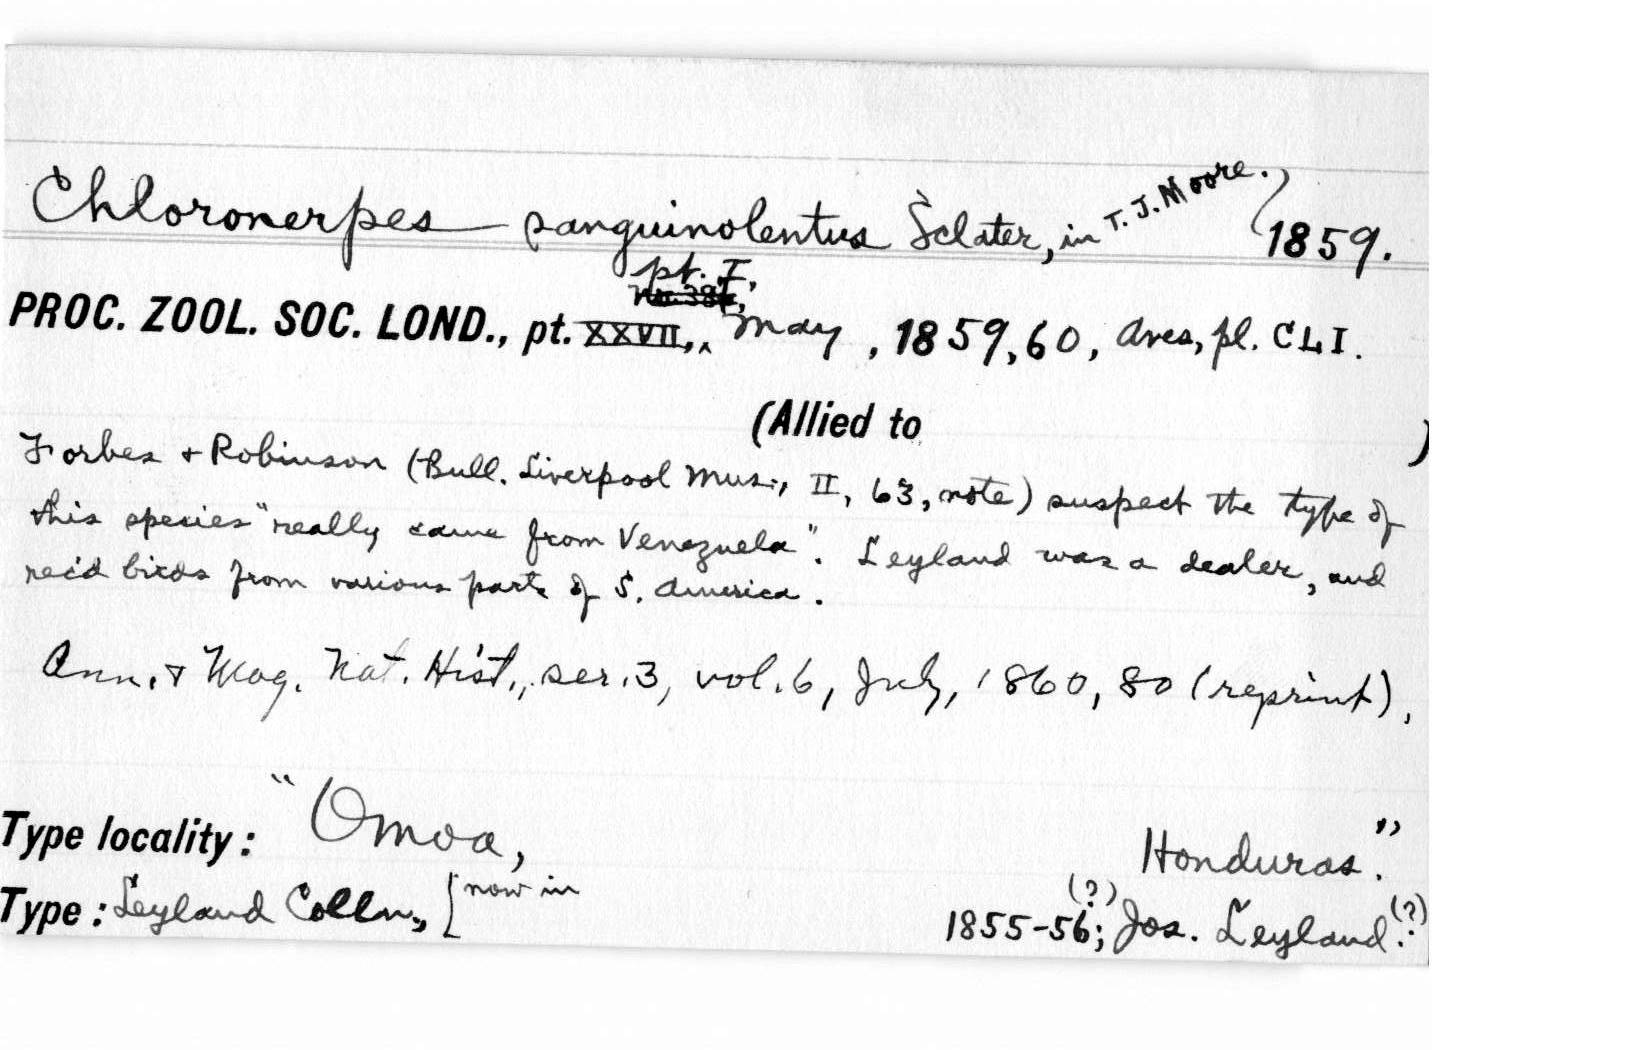 Chloronerpes sanguinolentus Sclater, in T. J. Moore. 1859.
pt. I,
PROC. ZOOL. SOC. LOND., pt. XXVII, May, 1859, 60, Aves, pl. CLI.
(Allied to )
Forbes + Robinson (Bull. Liverpool Mus., II, 63, note) suspect the type of
this species "really came from Venezuela". Leyland was a dealer, and
rec'd birds from various parts of S. America.
Ann. + Mag. Nat. Hist., ser. 3, vol. 6, July, 1860, 80 (reprint),
Type locality: "Omoa, Honduras."
Type: Leyland Colln., [now in 1855-56(?); Jos. Leyland.(?)